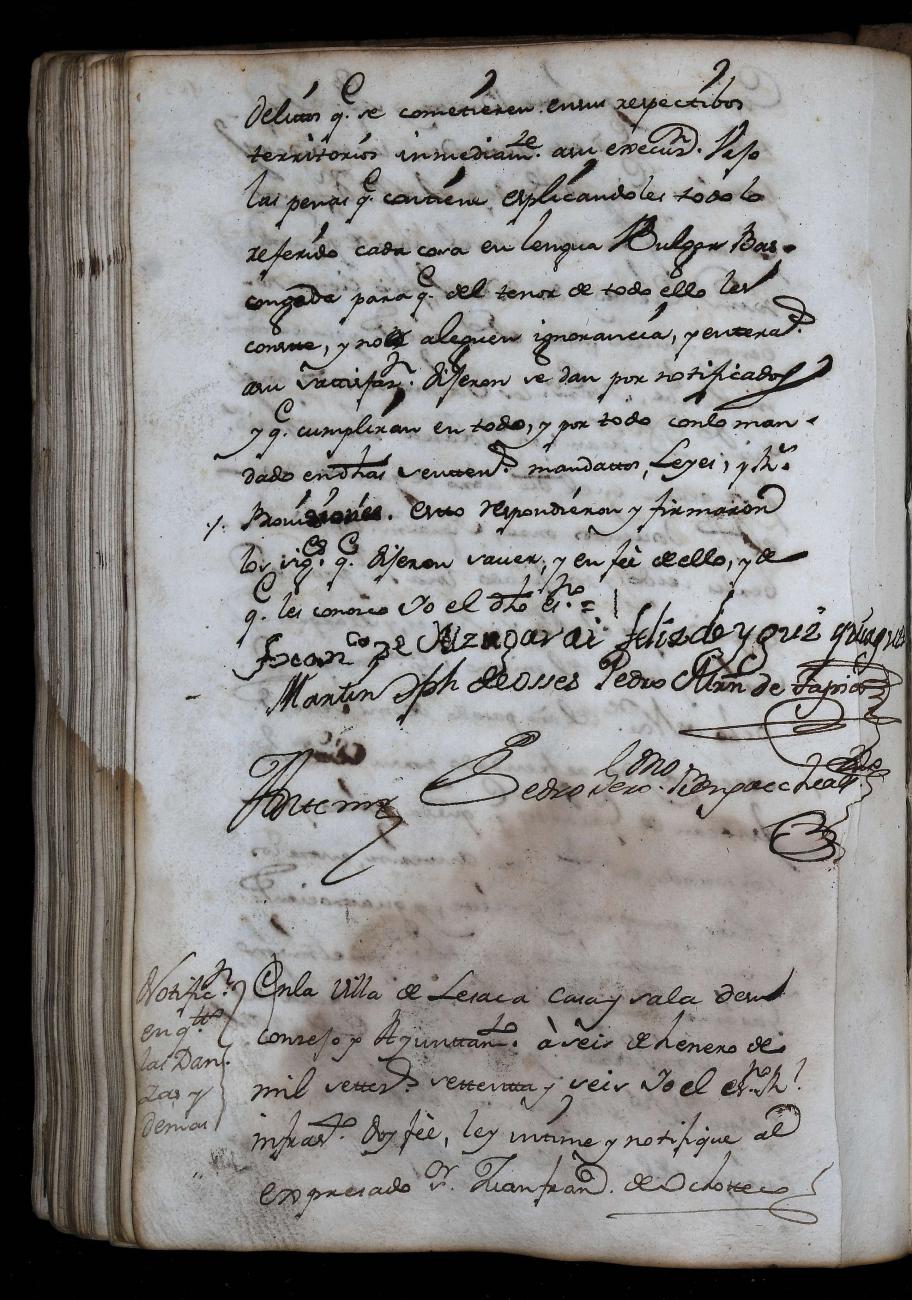 delitos q.e se cometieren en sus respectibos
territorios inmediam.te a su execuz.n Vajo
las penas q.e contiene esplicandoles todo lo
referido cada cosa en lengua Bulgar Bas-
congada para q.e del tenor de todo ello les
conste, y no aleguen ignorancia, y enterad.s
a su satisfaz.n dijeron se dan por notificados
y q.e cumpliran en todo, y por todo con lo man-
dado en dhas Sentten.s mandattos, Leyes, y R.s
Provisiones. esto respondieron y firmaron
los sig.es q.e dijeron saver, y en feè de ello, y de
q.e les conozco Yo el dho es.no =
Fran.co de Alzugarai
Martin Jph de Osses Pedro Mrn de Tapia
Antemi Pedro
Notific.n
en q.tto
las Dan
zas y
demas
En la Villa de Lesaca Casa y sala de su
consejo y Ayunttam.to à seis de henero de
mil settez.s settentta y seis Yo el es.no R.l
infraes.to doy feè, ley intime y notifique al
expresado S.or Juan fran.co de Ochotteco